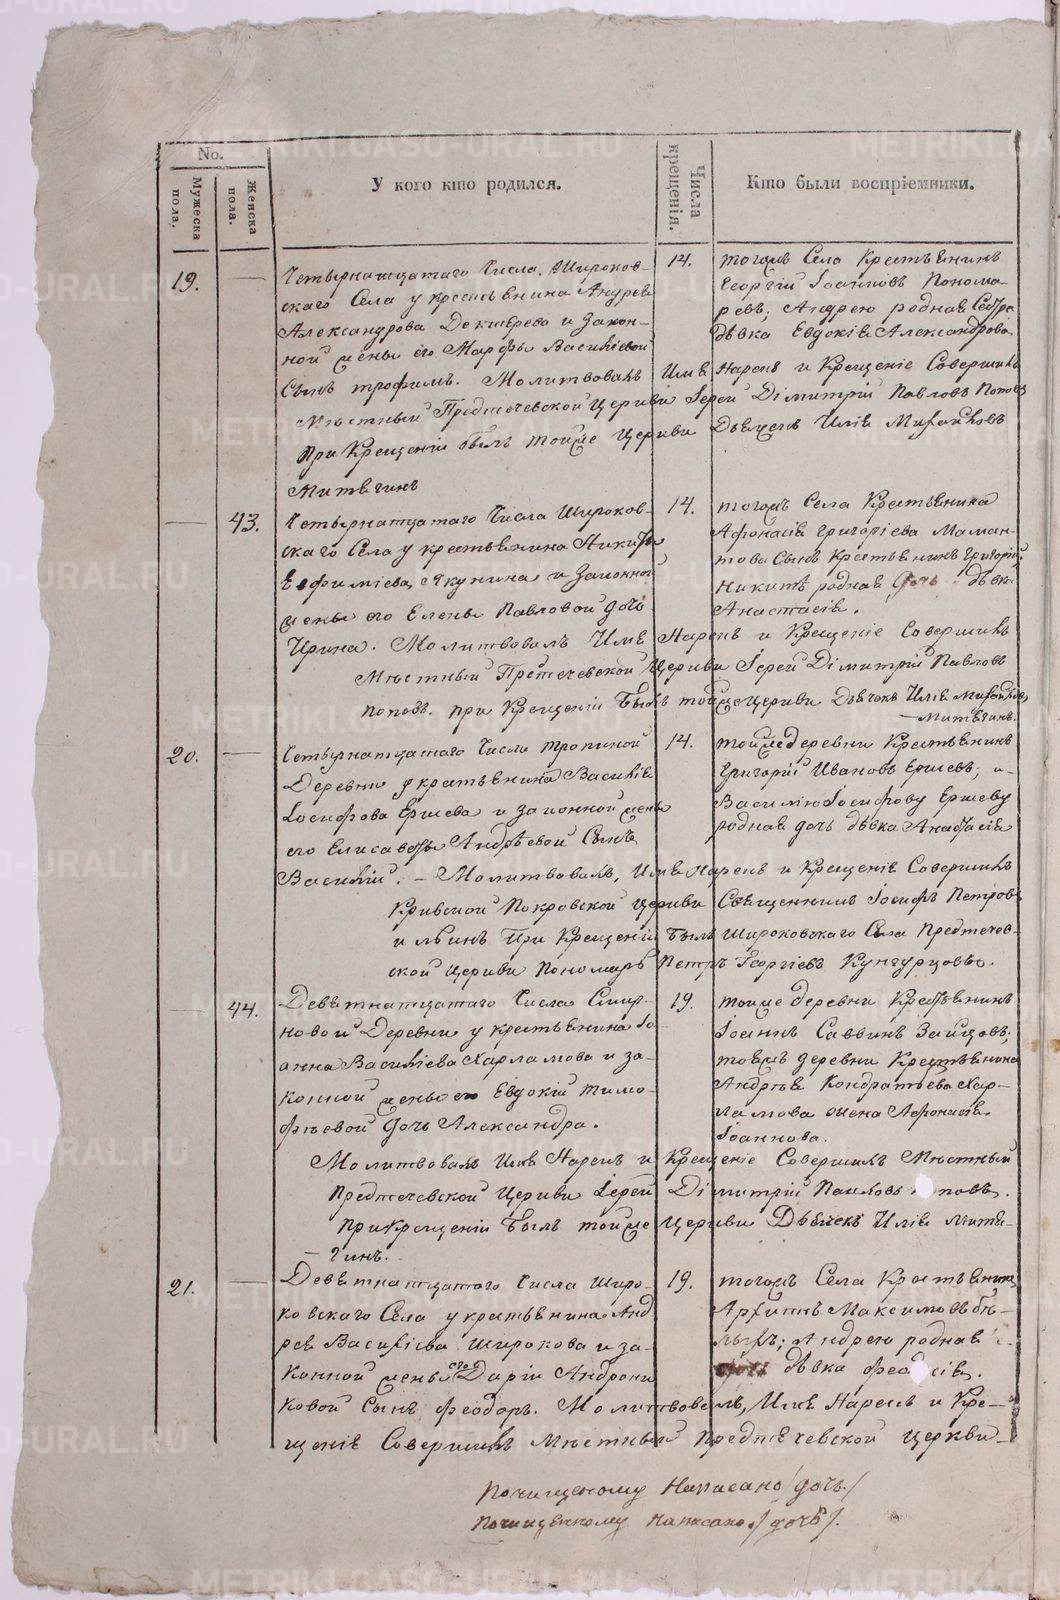 No.
Мужеска пола.
Женска пола.
У кого кто родился.
Числа крещенія.
Кто были воспріемники.
19.
Четырнатцатаго Числа. Широков-
скаго Села у крестьянина Андрея
Александрова Дектерева и Закон-
ной жены его Марфы Василіевой
Сынъ трофимъ. Молитвовалъ Имя Нарекъ и Крещеніе Совершилъ
Мѣстный Предтечевской Церкви Іерей Дімитрій Павловъ Поповъ
при Крещеніи былъ тойже Церкви Дьячекъ Илія Михайловъ
Митягинъ
14.
тогожъ Села Крестьянинъ
Георгій Іоанновъ Понома-
ревъ; Андрею родная Сестра
дѣвка Евдокія Александрова.
43.
Четырнатцатаго Числа Широков-
скаго Села у крестьянина Никиты
Евфиміева Якунина и Законной
жены его Елены Павловой дочь
Ирина. Молитвовалъ Имя Нарекъ и Крещеніе Совершилъ
Мѣстный Претечевской Церкви Іерей Дімитрій Павловъ
поповъ. при Крещеніи Былъ тойже Церкви Дьячокъ Илія Михайловъ
Митягинъ.
14.
тогожъ Села Крестьянина
Афонасія Григоріева Маман-
това Сынъ Крестьянинъ Григорій;
Никитѣ родная дочь дѣвка
Анастасія.
20.
Четырнатцатаго Числа тропиной
Деревни у крестьянина Василія
Іосифова Ершева и законной жены
его Елисаветы Андрѣевой Сынъ
Василій. – Молитвовалъ, Имя Нарекъ и Крещеніе Совершилъ
Кривской Покровской Церкви Священникъ Іосифъ Петровъ
Ильинъ При Крещеніи Былъ Широковскаго Села Предтечев-
ской Церкви Пономарь Петръ Георгіевъ Кунгурцовъ.
14.
тойже деревни Крестьянинъ
Григорій Ивановъ Ершевъ; и-
Василію Іосифову Ершеву
родная дочь дѣвка Анастасія
44.
Девятнатцатаго Числа Смир-
новой Деревни у крестьянина Іо-
анна Василіева Харламова и за-
конной жены его Евдокіи Тимо-
фѣевой дочь Александра.
Молитвовалъ Имя Нарекъ и Крещеніе Совершилъ Мѣстный
Предтечевской Церкви Іерей Дімитрій Павловъ Поповъ.
При Крещеніи Былъ тойже Церкви Дьячекъ Илія Митя-
– гинъ.
19.
тойже деревни Крестьянинъ
Іоаннъ Саввинъ Зайцовъ;
тоежъ деревни Крестьянина
Андрѣя Кондратьева Хар-
ламова жена Афонасія
Іоаннова.
21.
Девятнатцатаго Числа Широ-
ковскаго Села у крестьянина Анд
рея Василіева Широкова и за-
конной жены его Даріи Андрони
ковой Сынъ Феодоръ. Молитвовалъ, Имя Нарекъ и Кре-
щеніе Совершилъ Мѣстный Предтечевской Церкви
19.
тогожъ Села Крестьянинъ
Архипъ Максимовъ Бѣ-
лыхъ; Андрею родная
дочь дѣвка Феодосія.
Почищеному Написано /дочь./
Почищенному написано / дочь /.